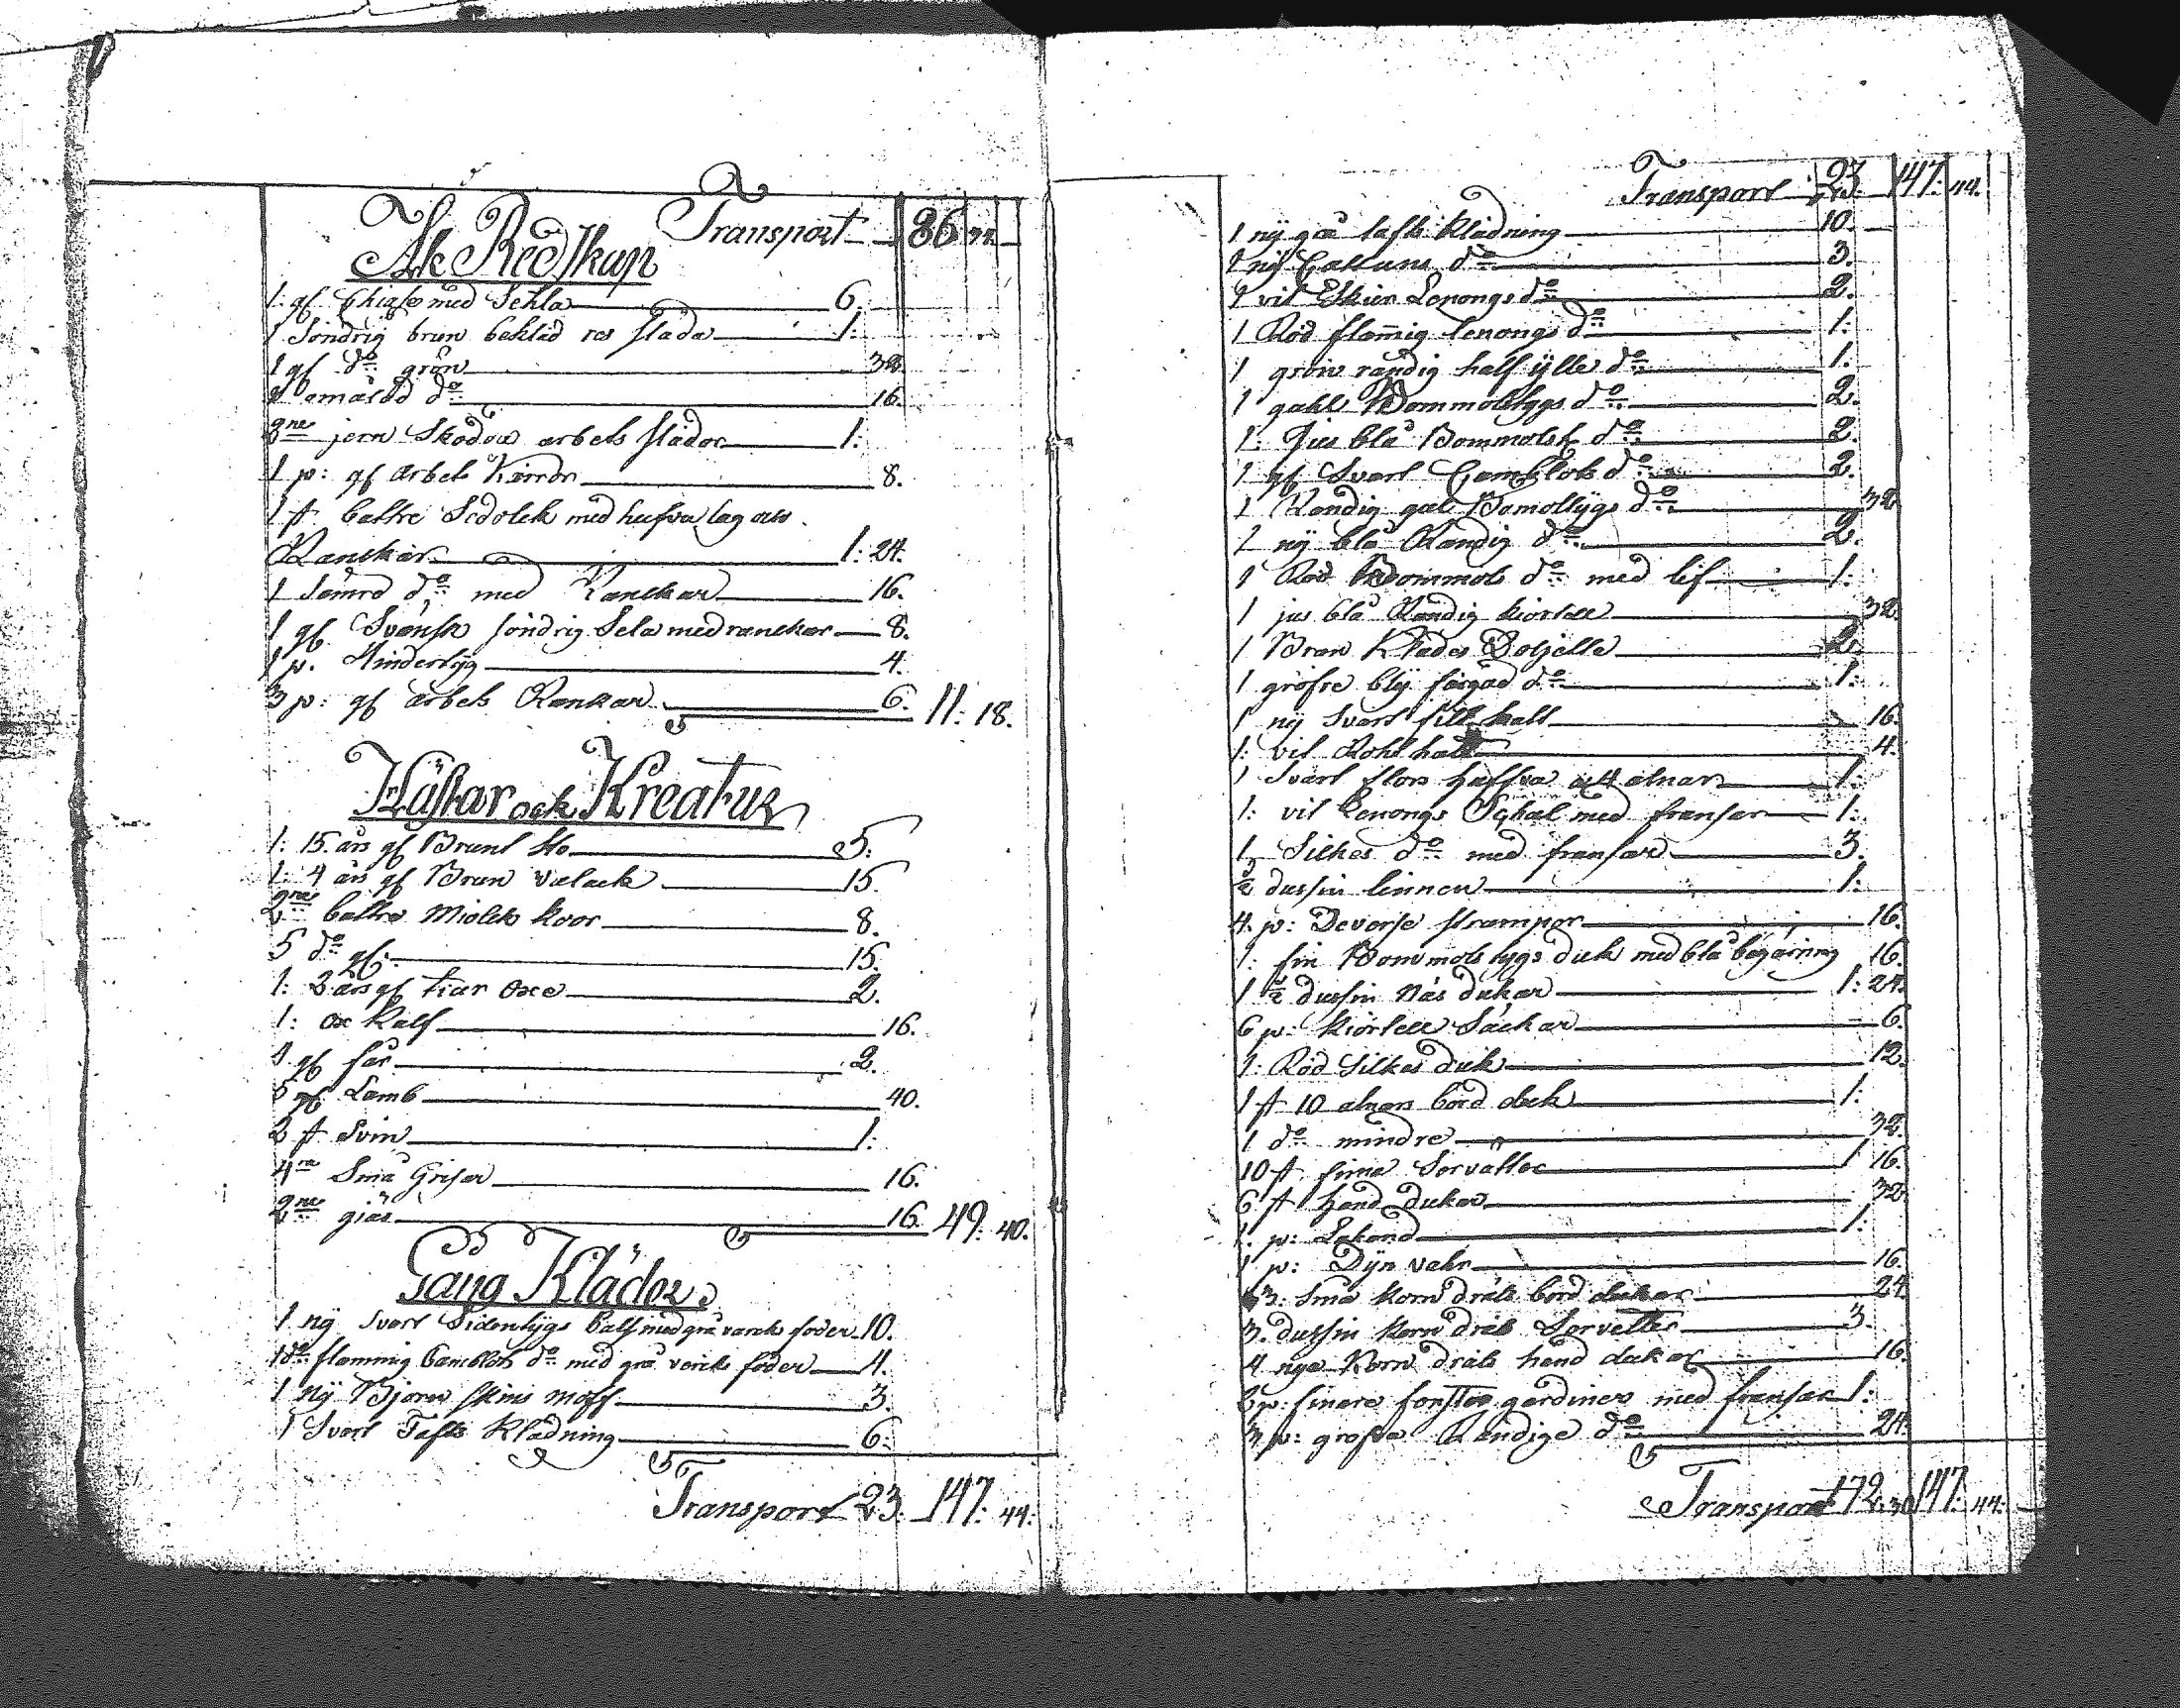 Transport 86
Åk Redskap
1: gl Chiase med Sehla 6.
1 Söndrig brun bekläd res släda 1:
1 gl do grön 32.
1 omålad do 16.
2ne jern Skodda arbets slädor 1:
1 p: gl arbets Kärror 8.
1 st bättre Sedolek med hufvulag ass
Ranckar 1: 24.
1 Sämre do med Ranckar 16.
1 gl Svänsk söndrig Sela med ranckar 8.
1 p. Hindertyg 4.
3 p: gl arbets Rankar 6. 11: 18.
Hästar ock Kreatur
1: 15. års gl Brunt Sto 5:
1: 4 års gl Brun valack 15.
2ne bättre Miölck koor 8.
5 do gl: 15.
1: 2 års gl tiur Oxe 2.
1: ox Kalf 16.
gl får 2.
5 gl Lamb 40.
2 st Svin 1:
4ra Små Grisar 16.
2ne giäs 16. 49: 40.
Gång Kläder
1 ny Svart Sidentygs Salf med grå varcks foder 10.
1 do flammig Camblots do med grå varcks foder 4.
1 ny Björn skins moff 3.
1 Svart Tafts Klädning 6:
Transport 23. 147: 44:
Transport 23. 147: 44.
1 ny grå tafts Klädning 10.
1 ny Cattuns do 3.
1 vit Eskier Lenongs do 2.
1 Röd flamig lenongs do 1:
1 grön randig half ylle do 1.
1 gahl Bommolstygs do 2.
1: Jus blå Bommolsk do 2.
1 gl Svart Camblots do 2.
1 Randig gal Bomoltygs do 32.
1 ny blå Randig do 2.
1 Röd Bommols do med lif 1:
1 jus blå Randig kiortell 32.
1 Brun Klädes 2.
1 gröfre bly färgad do 1:
1 ny Svart filt hatt 16.
1: vit Rohl hatt 4.
1 Svart flors huffva a 4 alnar 1:
1: vit Lenongs Schal med fransar 1:
1 Silkes do med fransar 3.
1/2 dussin linnen 1:
4. p: Deverse strumpor 16.
1: fin Bommols tygs duk med blå bogäring 16.
1 1/2 dussin näs dukar 1: 24.
6 p: kiortell Säckar 6.
1: Röd Silkes duk 12.
1 st 10 alnars bord duk 1:
1 do mindre 32.
10 st. fina Servatter 1 16.
6 st hand dukar 32
1. p: Lakand 1:
1 p: Dyn vahr 16.
3: Små korn dräls bord dukar 24
3. dussin korn dräls Servetter 3.
4 nya Korn dräls hand dukar 16.
2 p: finare fönster gardiner med fransar 1:
3 p: grofva Randige do 24.
Transport 72: 30 147: 44: